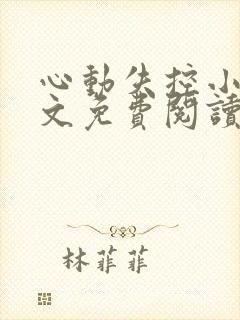 心動失控小
文免費閱讀
林菲菲